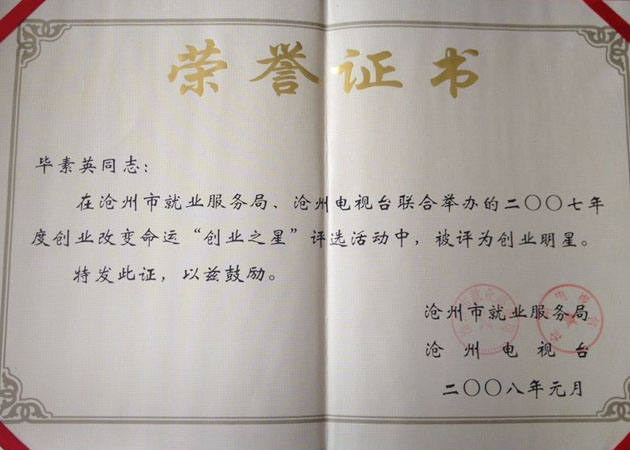 荣誉证书
毕素英同志：
在沧州市就业服务局、沧州电视台联合举办的二〇〇七年
度创业改变命运“创业之星”评选活动中，被评为创业明星。
特发此证，以兹鼓励。
沧州市就业服务局
沧州电视台
二〇〇八年元月